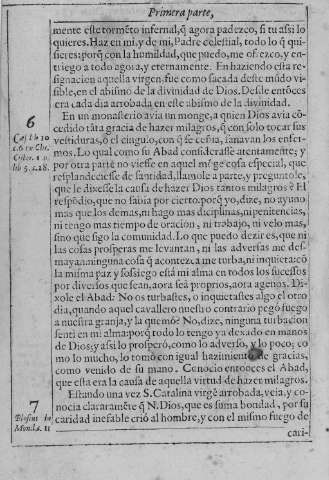 Primera parte,
mente este tormẽto infernal, q̃ agora padezco, si tu assi lo
quieres. Haz en mi, y de mi, Padre celestial, todo lo q̃ qui-
sieres: porq̃ con la humildad, que puedo, me ofrezco, y en-
triego a todo agora, y eternamente. En haziendo esta re-
signacion aquella virgen, fue como sacada deste mũdo visi-
ble, en el abismo de la divinidad de Dios. Desde entõces
era cada dia arrobada en este abismo de la divinidad.
6
En un monasterio avia un monge, a quien Dios avia cõ-
cedido tãta gracia de hazer milagros, q̃ con solo tocar sus
vestiduras, ò el cingulo, con q̃ se ceñia, sanavan los enfer-
mos. Lo qual como su Abad considerasse atentamente; y
por otra parte no viesse en aquel mõge cosa especial, que
resplandeciesse de santidad, llamole a parte, y preguntole,
que le dixesse la causa de hazer Dios tantos milagros? El
respõdio, que no sabia por cierto. porq̃ yo, dize, no ayuno
mas que los demas, ni hago mas diciplinas, ni penitencias,
ni tengo mas tiempo de oracion, ni trabajo, ni velo mas,
sino que sigo la comunidad. Lo que puedo dezir es, que ni
las cosas prosperas me levantan, ni las adversas me des-
mayan. ninguna cosa q̃ acontezca me turba, ni inquieta: cõ
la misma paz y sossiego està mi alma en todos los sucessos
por diversos que sean, aora sea proprios, aora agenos. Di-
xole el Abad: No os turbastes, o inquietastes algo el otro
dia, quando aquel cavallero nuestro contrario pegó fuego
a nuestra granja, y la quemò? No, dize, ninguna turbacion
senti en mi alma: porq̃ todo lo tengo ya dexado en manos
de Dios; y assi lo prospero, como lo adverso, y lo poco; co-
mo lo mucho, lo tomo con igual hazimiento de gracias,
como venido de su mano. Conocio entonces el Abad,
que esta era la causa de aquella virtud de hazer milagros.
7
Estando una vez S. Catalina virgẽ arrobada, veia, y co-
nocia claramẽte q̃ N. Dios, que es suma bondad, por su
caridad inefable criò al hombre, y con el mismo fuego de
cari-